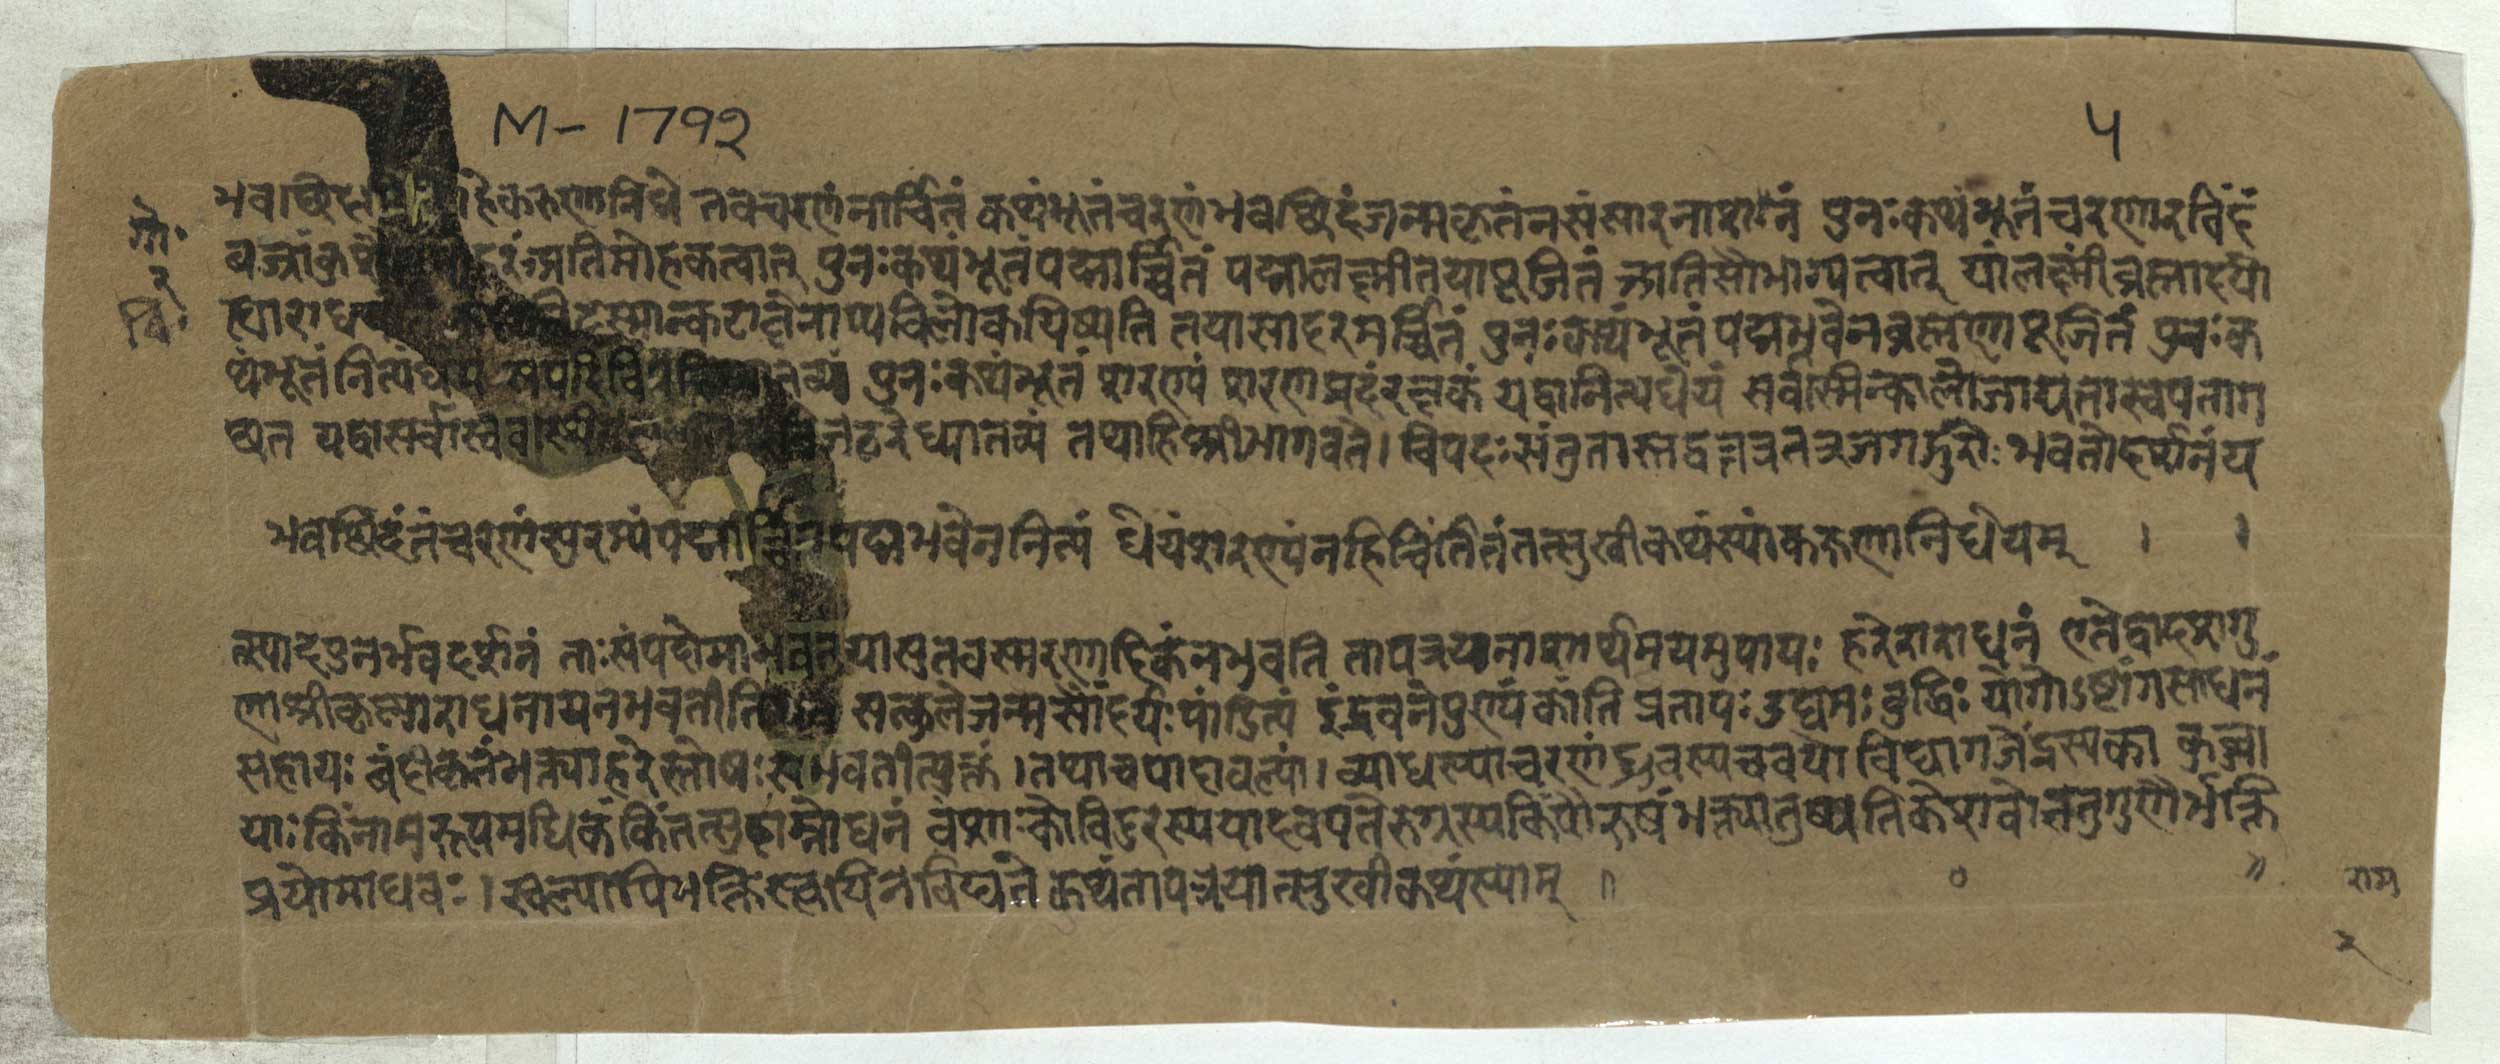 M-1792
५
भवच्छिद हेकरुणानिधे तवचरणंनार्चितं कथंभूतंचरणंभवच्छिदंजन्मकृतंनसंसारनाशनं पुनःकथंभूतंचरणारविंदं
गो.
वज्रांकुश अतिमोहकत्वात् पुनःकथंभूतंपद्मार्च्चितं पद्मालक्ष्मीतयापूजितं अतिसौभाग्यत्वात् यांलक्ष्मींब्रह्मादयो
२
प्यारा दस्मान्कटाक्षेनाप्यविलोकयिष्यति तयासादरमर्च्चितं पुनःकथंभूतंपद्मभवेनब्रह्मणापूजितं पुनःक
वि.
थंभूतंनित्यंध्येयं तव्यं पुनःकथंभूतं शरण्यं शरणप्रदंरक्षकं यद्वानित्यध्येयं सर्वस्मिन्कालेजाग्रतास्वपताग
छत यद्वासर्वास्वेवा ध्यातव्यं तथाहिश्रीभागवते। विपदःसंतुताःशश्वत्तत्रतत्रजगद्गुरोः भवतोदर्शनंय
भवच्छिदंतंचरणंसुरम्यंपद्मार्च्चितंपद्मभवेननित्यं ध्येयंशरण्यंनहिचिंतितंतत्सुखीकथंस्यांकरुणानिधेयम् । ।
त्स्यादपुनर्भवदर्शनं ताःसंपदोमाभवंतु यासुतवस्मरणादिकंनभवति तापत्रयनाशार्थमयमुपायः हरेराराधनं एतेद्वादशगु
णाश्रीकृष्णाराधनायनभवंतीति सत्कुलेजन्मसौंदर्यःपांडित्यं इंद्रवनेपुण्यंकांति प्रतापःउद्यमःबुद्धिः योगोऽष्टांगसाधनं
सहायः भक्त्याहरेस्तोषःसंभवतीत्युक्तं।तथाचपद्यावल्यां।व्याधस्याचरणंध्रुवस्यचवयोविद्यागजेंद्रस्यका कुब्जा
याःकिंनामरूपमधिकं किंतत्सुदाम्नोधनं वंशःकोविदुरस्ययादवपतेरुग्रस्यकिंपौरुषंभक्त्यातुष्यतिकेशवोनतुगुणैर्भक्ति
प्रियोमाधवः।स्वल्पापिभक्तिस्त्वयिनविद्यते कथंतापत्रयात्सुखीकथंस्याम् ॥ ० ॥
राम
२